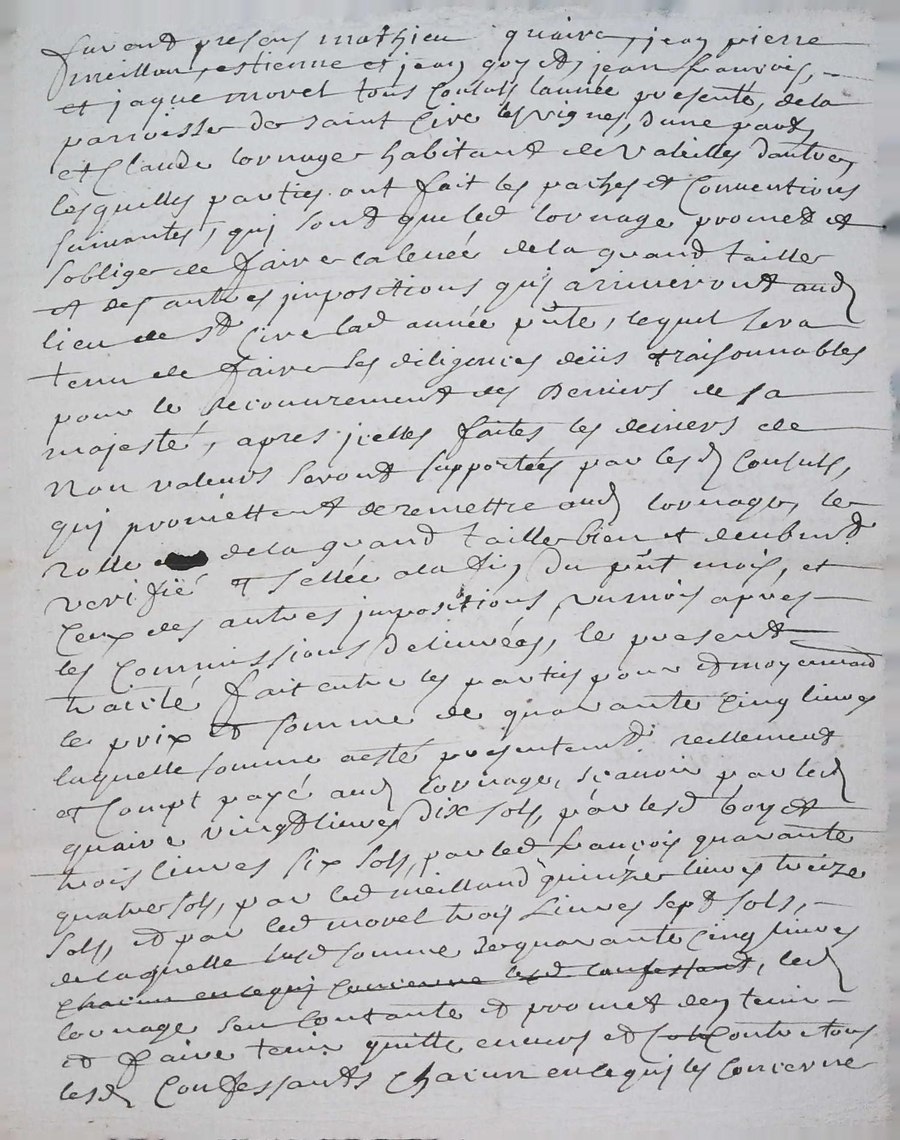 furent presens mathieu quaire, jean pierre
meilland, estienne et jean goy et jean françois,
et jaque morel tous Consuls lannée presente, de la
parroisse de saint Cire les vignes, dune part,
et Claude lornage habitant de valeilles dautre,
lesquelles parties ont fait les paches et Conventions
suivantes, qui sont que led lornage promet et
soblige de faire la levée de la grand taille
et des autres jmpositions qui ariveront aud
lieu de st Cire lad année pnte, lequel sera
tenu de faire les diligences deües et raisonnables
pour le recouvrement des deniers de sa
majesté, apres jcelles faites les deniers de
non valeurs seront supportées par lesd Consuls,
qui promettent de remettre aud lornage, le
rolle de la grand taille bien et deubemt
verifié et sellée a la fin du pnt mois, et
Ceux des autres jmpositions, un mois apres
les Commissions delivrées, le present
traitté fait entre les parties pour et moyennant
le prix et somme de quarante Cinq livres
laquelle somme a esté presentemt reellement
et Compt payé aud lornage, sçavoir par led
quaire vingt livres dix sols, par lesd goy et
trois livres six sols, par led françois quarante
quatre sols, par led meilland quinze livres treize
sols, et par led morel trois livres sept sols,
de laquelle susd somme de quarante Cinq livres
chacun en ce qui concerne lesd confessants, led
lornage sen Contante et promet den tenir
et faire tenir quitte envers et Contre tous
lesd Confessants Chacun en ce qui les Concerne